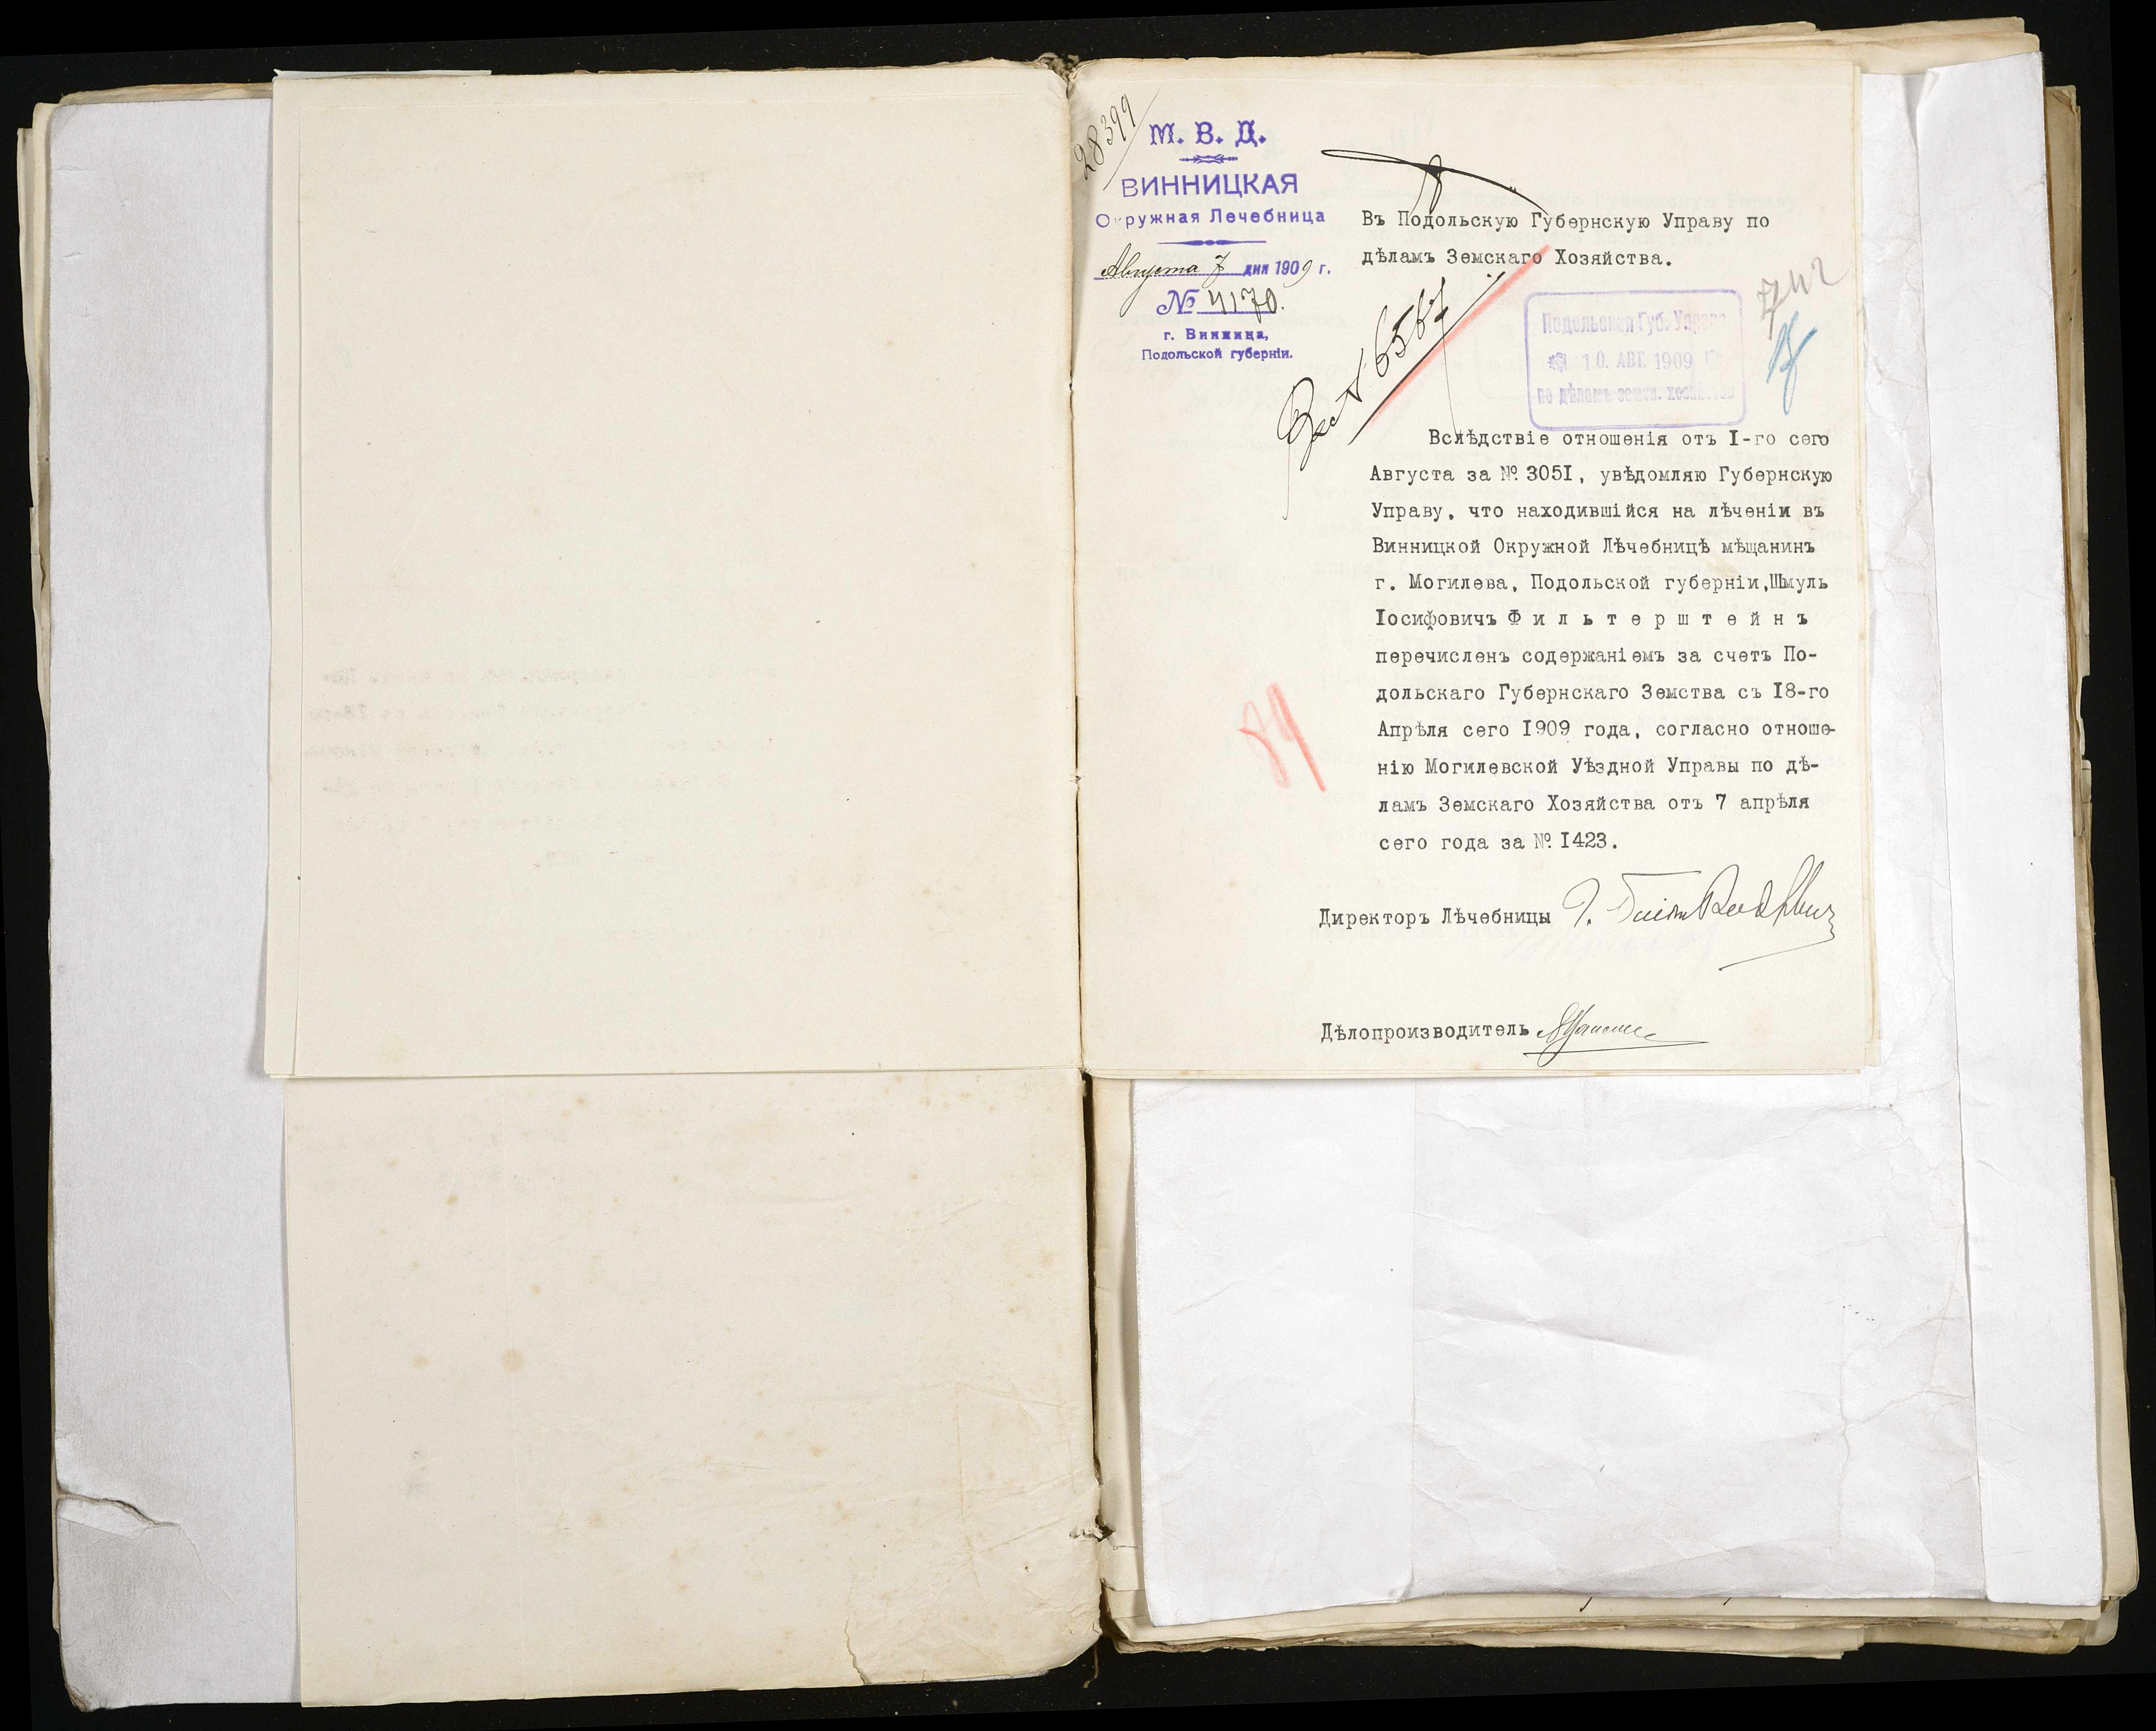 28399
М. В. Д.
ВИННИЦКАЯ
Окружная Лечебница
Августа 7 дня 1909 г.
№ 4170.
г. Винница,
Подольской губернiи.
Въ Подольскую Губернскую Управу по
дѣламъ Земскаго Хозяйства.
742
Подольская Губ. Управа
10. АВГ. 1909
по дѣламъ земск. хозяйства
6567
Вслѣдствіе отношенія отъ I-го сего
Августа за № 305I, увѣдомляю Губернскую
Управу, что находившійся на лѣченіи въ
Винницкой Окружной Лѣчебницѣ мѣщанинъ
г. Могилева, Подольской губерніи, Шмуль
Іосифовичъ Ф и л ь т е р ш т е й н ъ
перечисленъ содержаніемъ за счетъ По-
дольскаго Губернскаго Земства съ I8-го
Апрѣля сего I909 года, согласно отноше-
нію Могилевской Уѣздной Управы по дѣ-
ламъ Земскаго Хозяйства отъ 7 апрѣля
сего года за № I423.
84
Директоръ Лѣчебницы
Дѣлопроизводитель